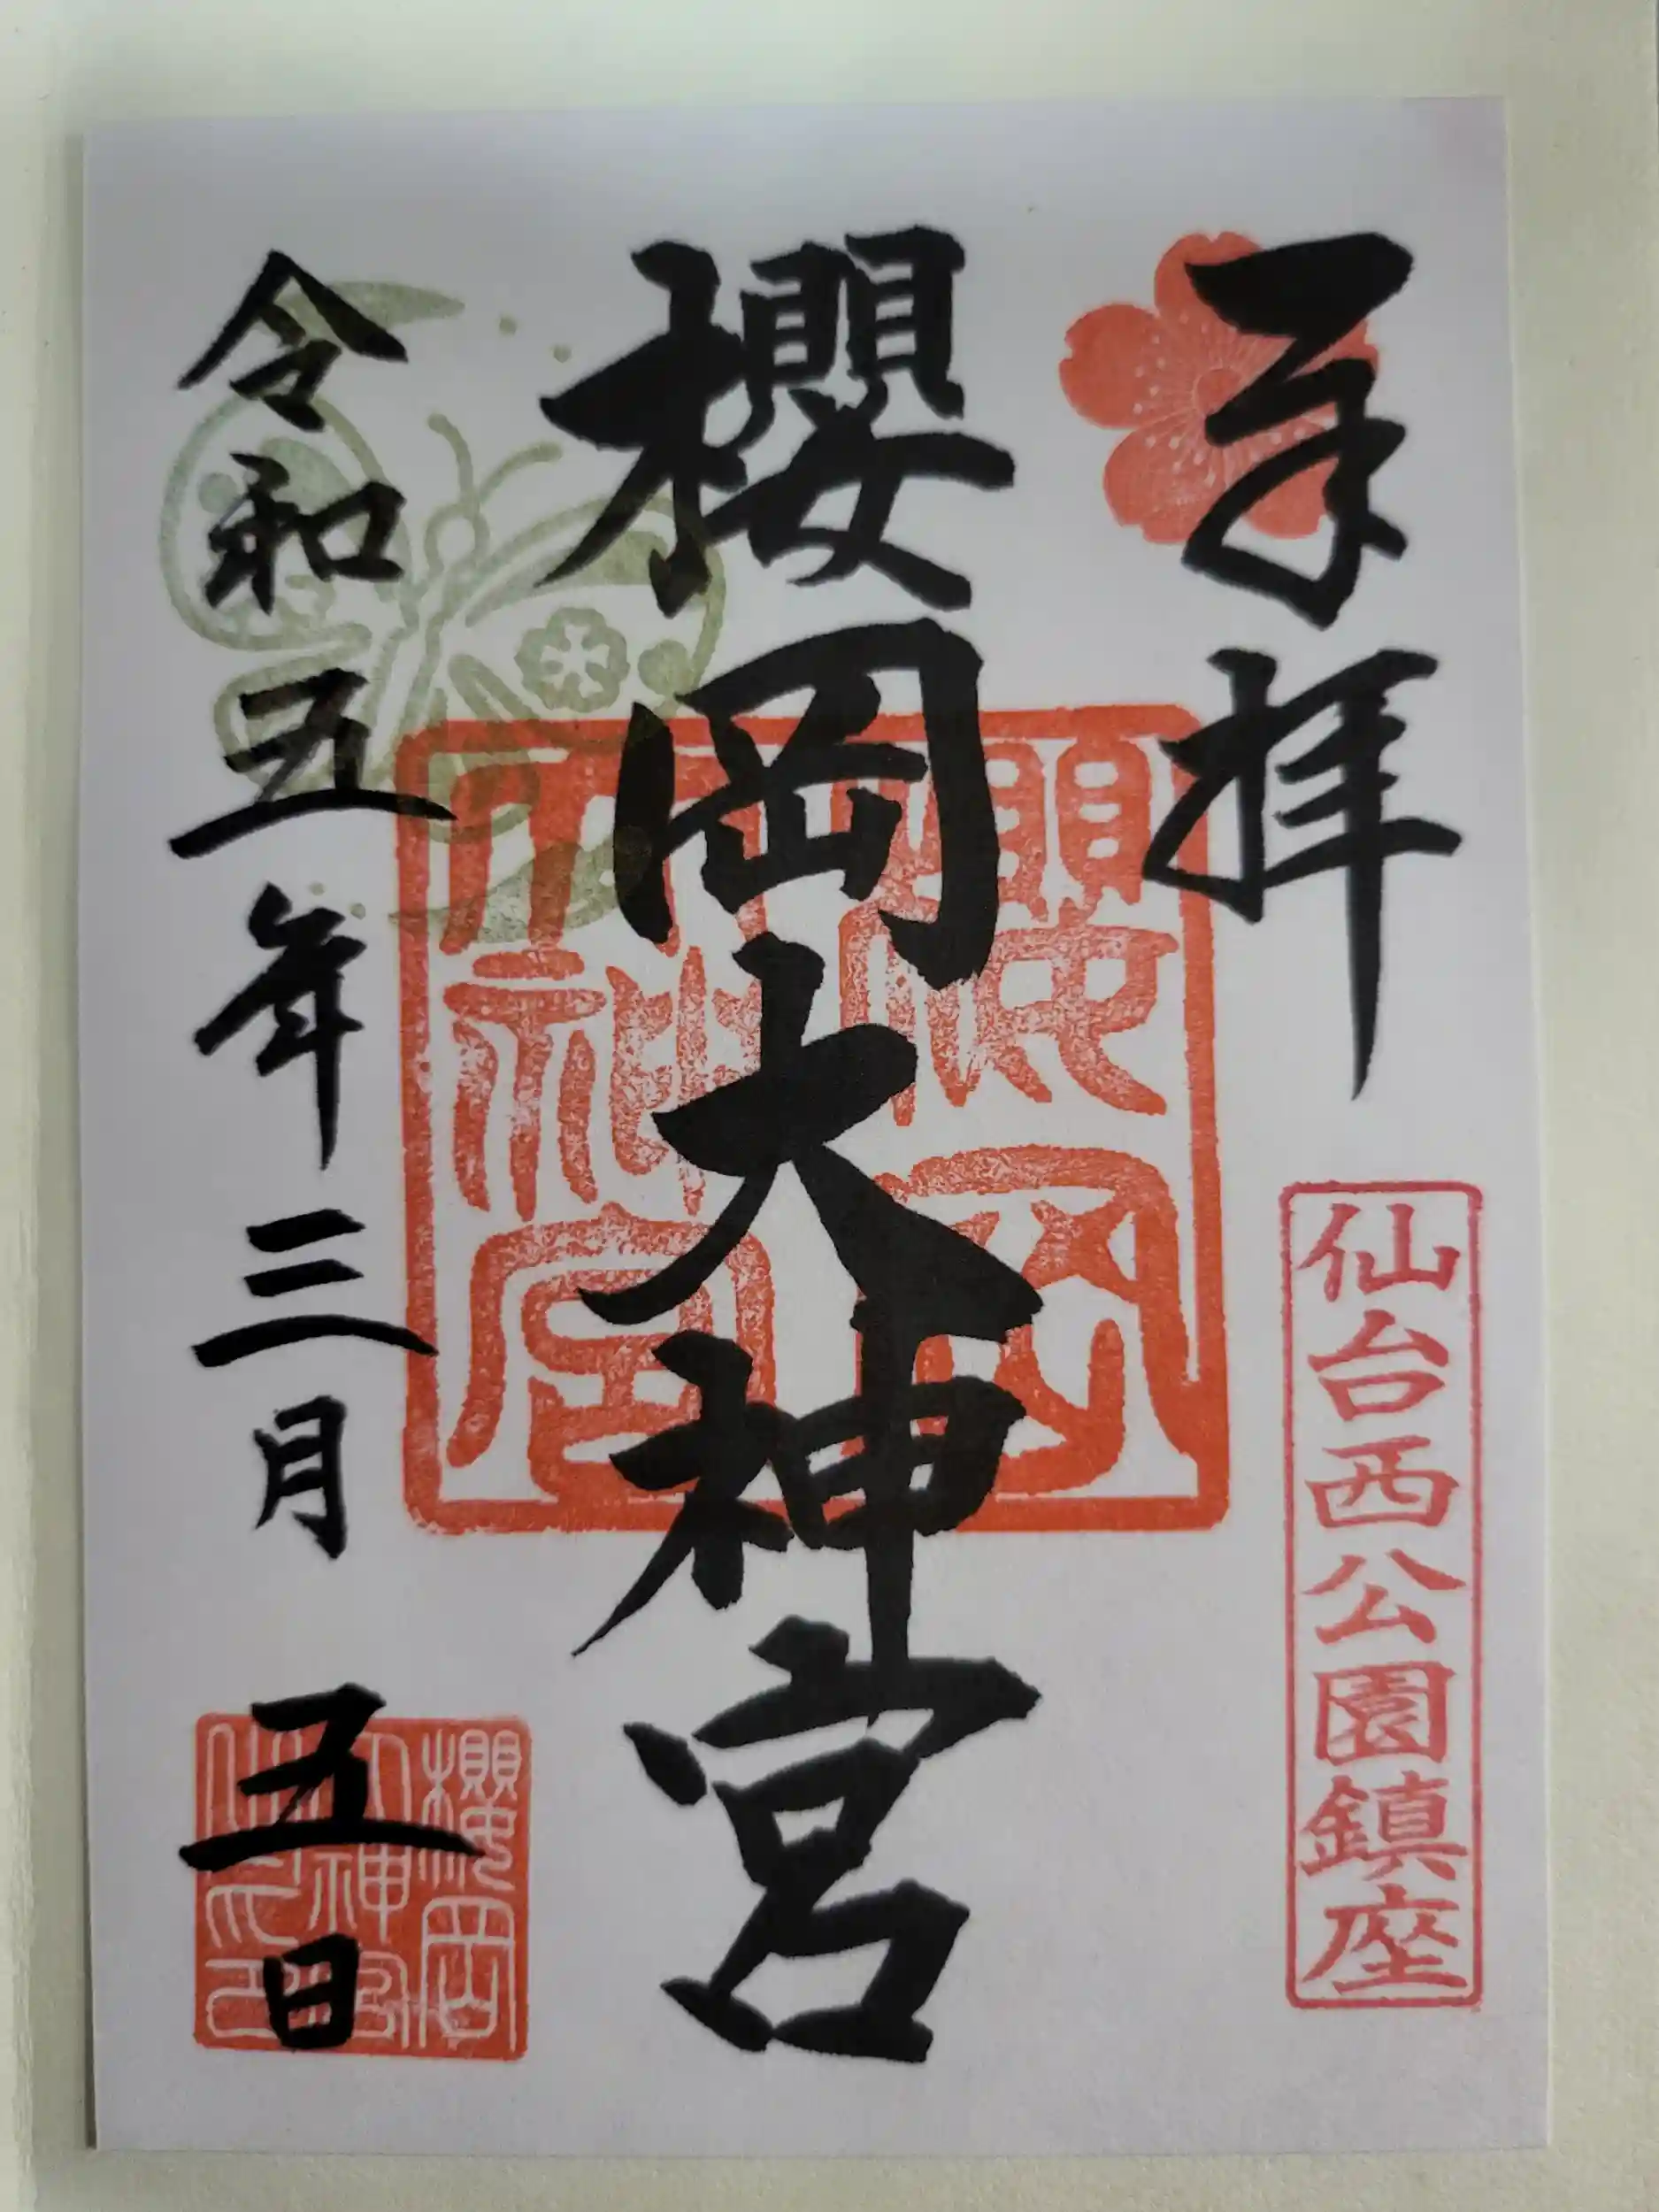 奉拝
仙台西公園鎮座
櫻岡大神宮
櫻岡大神宮
令和五年三月五日